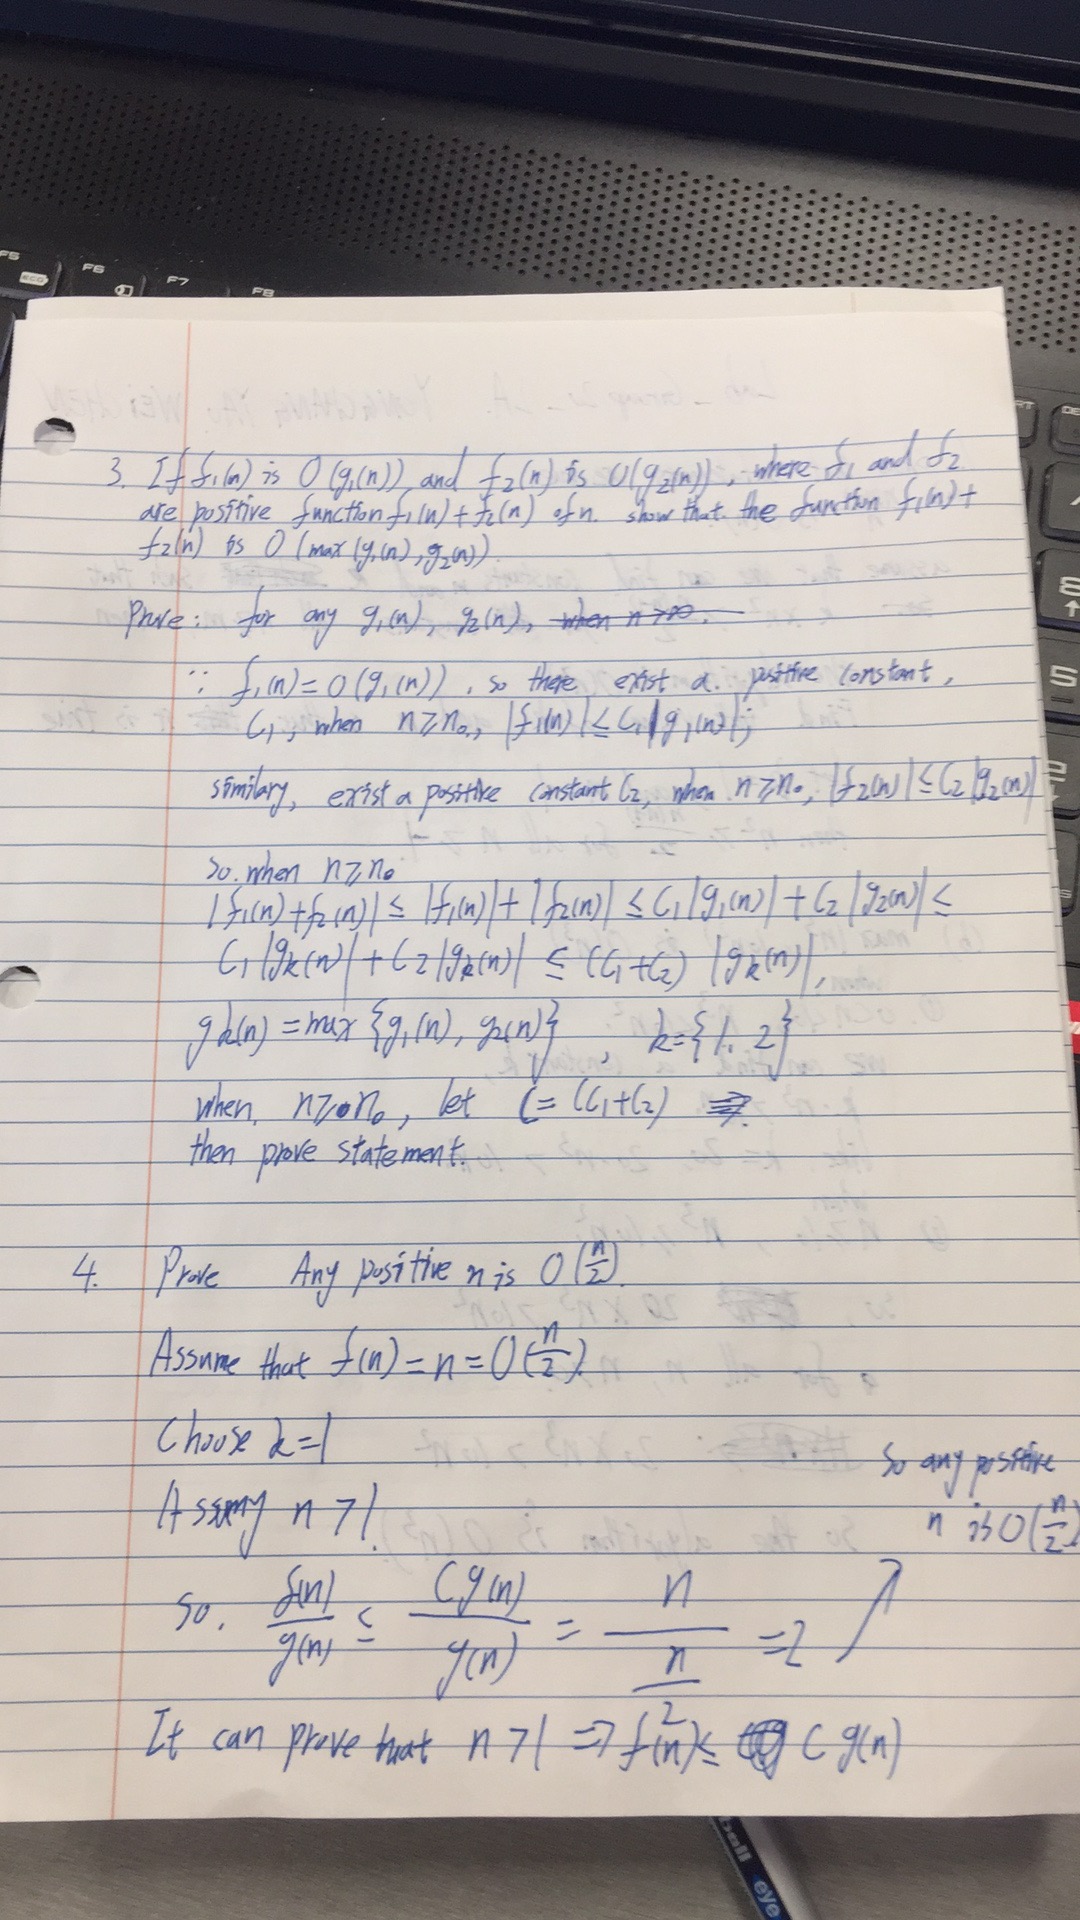 F5
F6
F7
F8
eco
3. If f₁(n) is O(g₁(n)) and f₂(n) is O(g₂(n)), where f₁ and f₂
are positive function f₁(n)+f₂(n) of n. show that the function f₁(n)+
f₂(n) is O(max(g₁(n), g₂(n)).
Prove: for any g₁(n), g₂(n), when n→∞.
∵ f₁(n)=O(g₁(n)), so there exist a positive constant,
C₁, when n≥n₀, |f₁(n)|≤C₁|g₁(n)|;
similary, exist a positive constant C₂, when n≥n₀, |f₂(n)|≤C₂|g₂(n)|
So. when n≥n₀
|f₁(n)+f₂(n)| ≤ |f₁(n)|+|f₂(n)| ≤ C₁|g₁(n)|+C₂|g₂(n)| ≤
C₁|gk(n)|+C₂|gk(n)| ≤ (C₁+C₂) |gk(n)|,
gk(n)=max{g₁(n), g₂(n)}, k={1, 2}
when n≥n₀, let C=(C₁+C₂)
then prove statement.
4. Prove Any positive n is O(n/2).
Assume that f(n)=n=O(n/2).
Choose k=1
n>1.
So any positive
n is O(n/2)
So, f(n)/g(n) ≤ Cg(n)/g(n) = n/(n/2) =2
It can prove that n>1 => f(n)≤ Cg(n)
eye